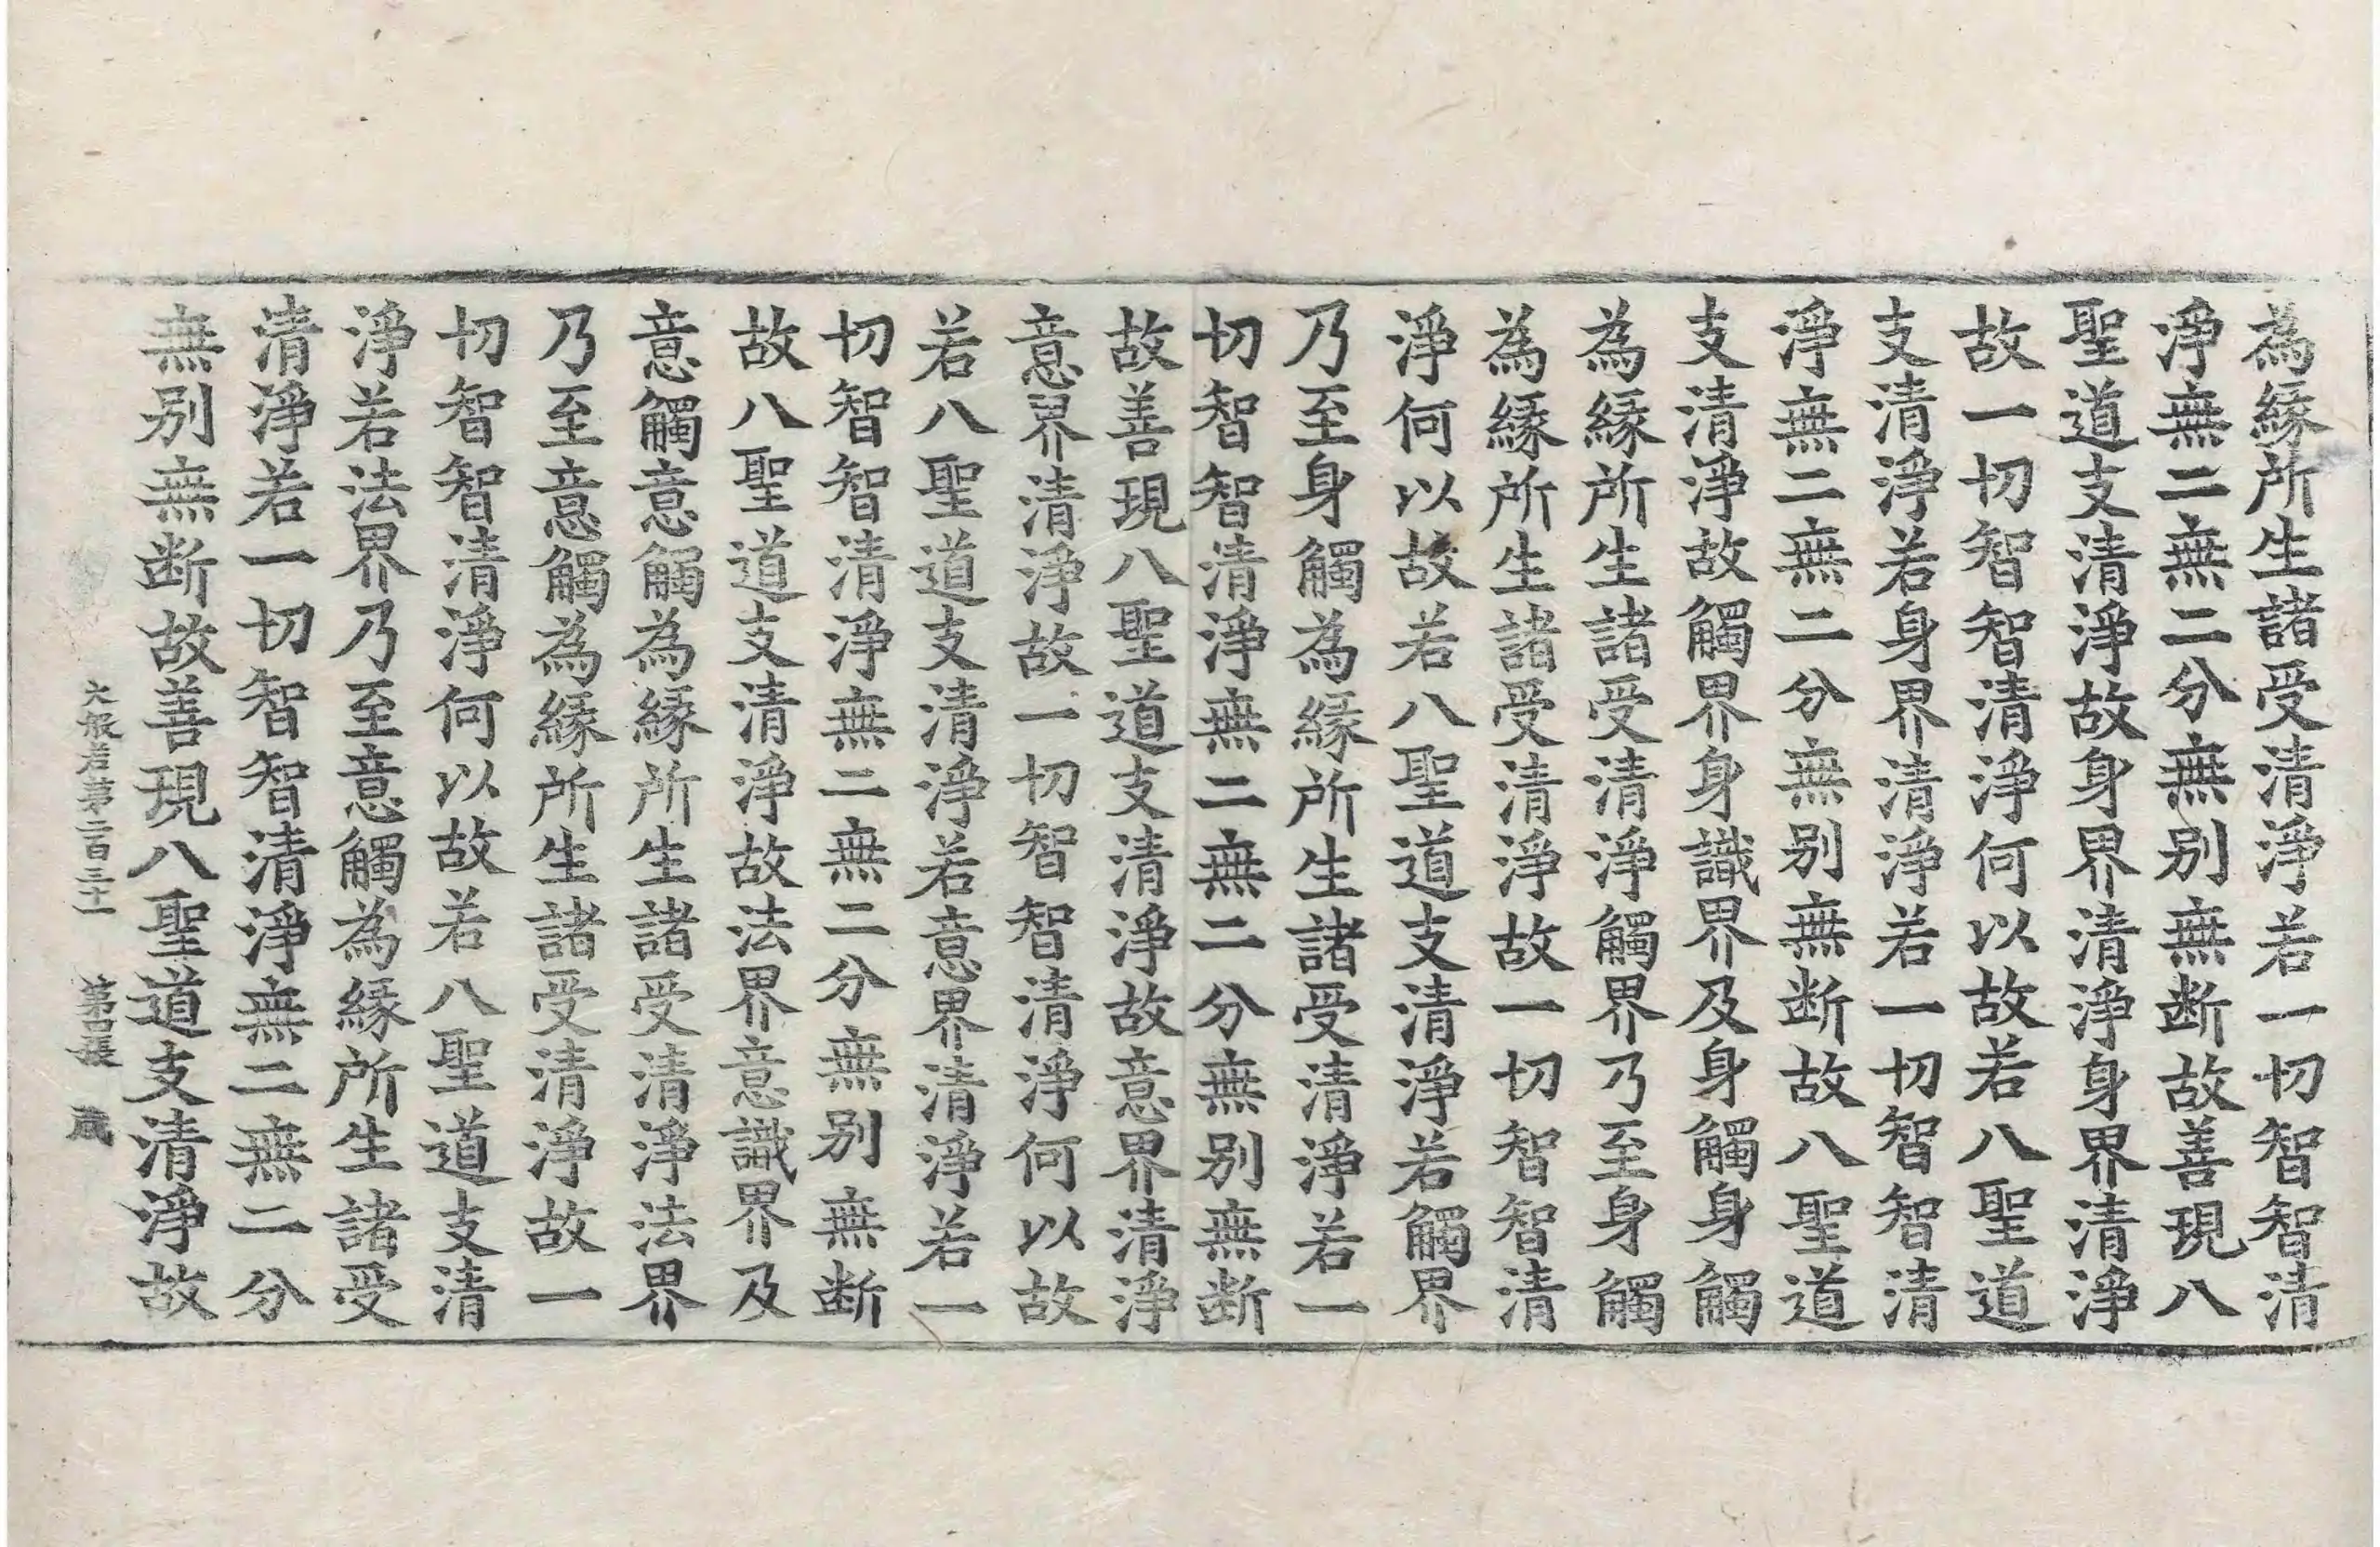 為縁所生諸受清淨若一切智智清
淨無二無二分無別無断故善現八
聖道支清淨故身界清淨身界清淨
故一切智智清淨何以故若八聖道
支清淨若身界清淨若一切智智清
淨無二無二分無別無断故八聖道
支清淨故觸界身識界及身觸身觸
為縁所生諸受清淨觸界乃至身觸
為縁所生諸受清淨故一切智智清
淨何以故若八聖道支清淨若觸界
乃至身觸為縁所生諸受清淨若一
切智智清淨無二無二分無別無断
故善現八聖道支清淨故意界清淨
意界清淨故一切智智清淨何以故
若八聖道支清淨若意界清淨若一
切智智清淨無二無二分無別無断
故八聖道支清淨故法界意識界及
意觸意觸為縁所生諸受清淨法界
乃至意觸為縁所生諸受清淨故一
切智智清淨何以故若八聖道支清
淨若法界乃至意觸為縁所生諸受
清淨若一切智智清淨無二無二分
無別無断故善現八聖道支清淨故
大般若第二百三十一 第四張 歲